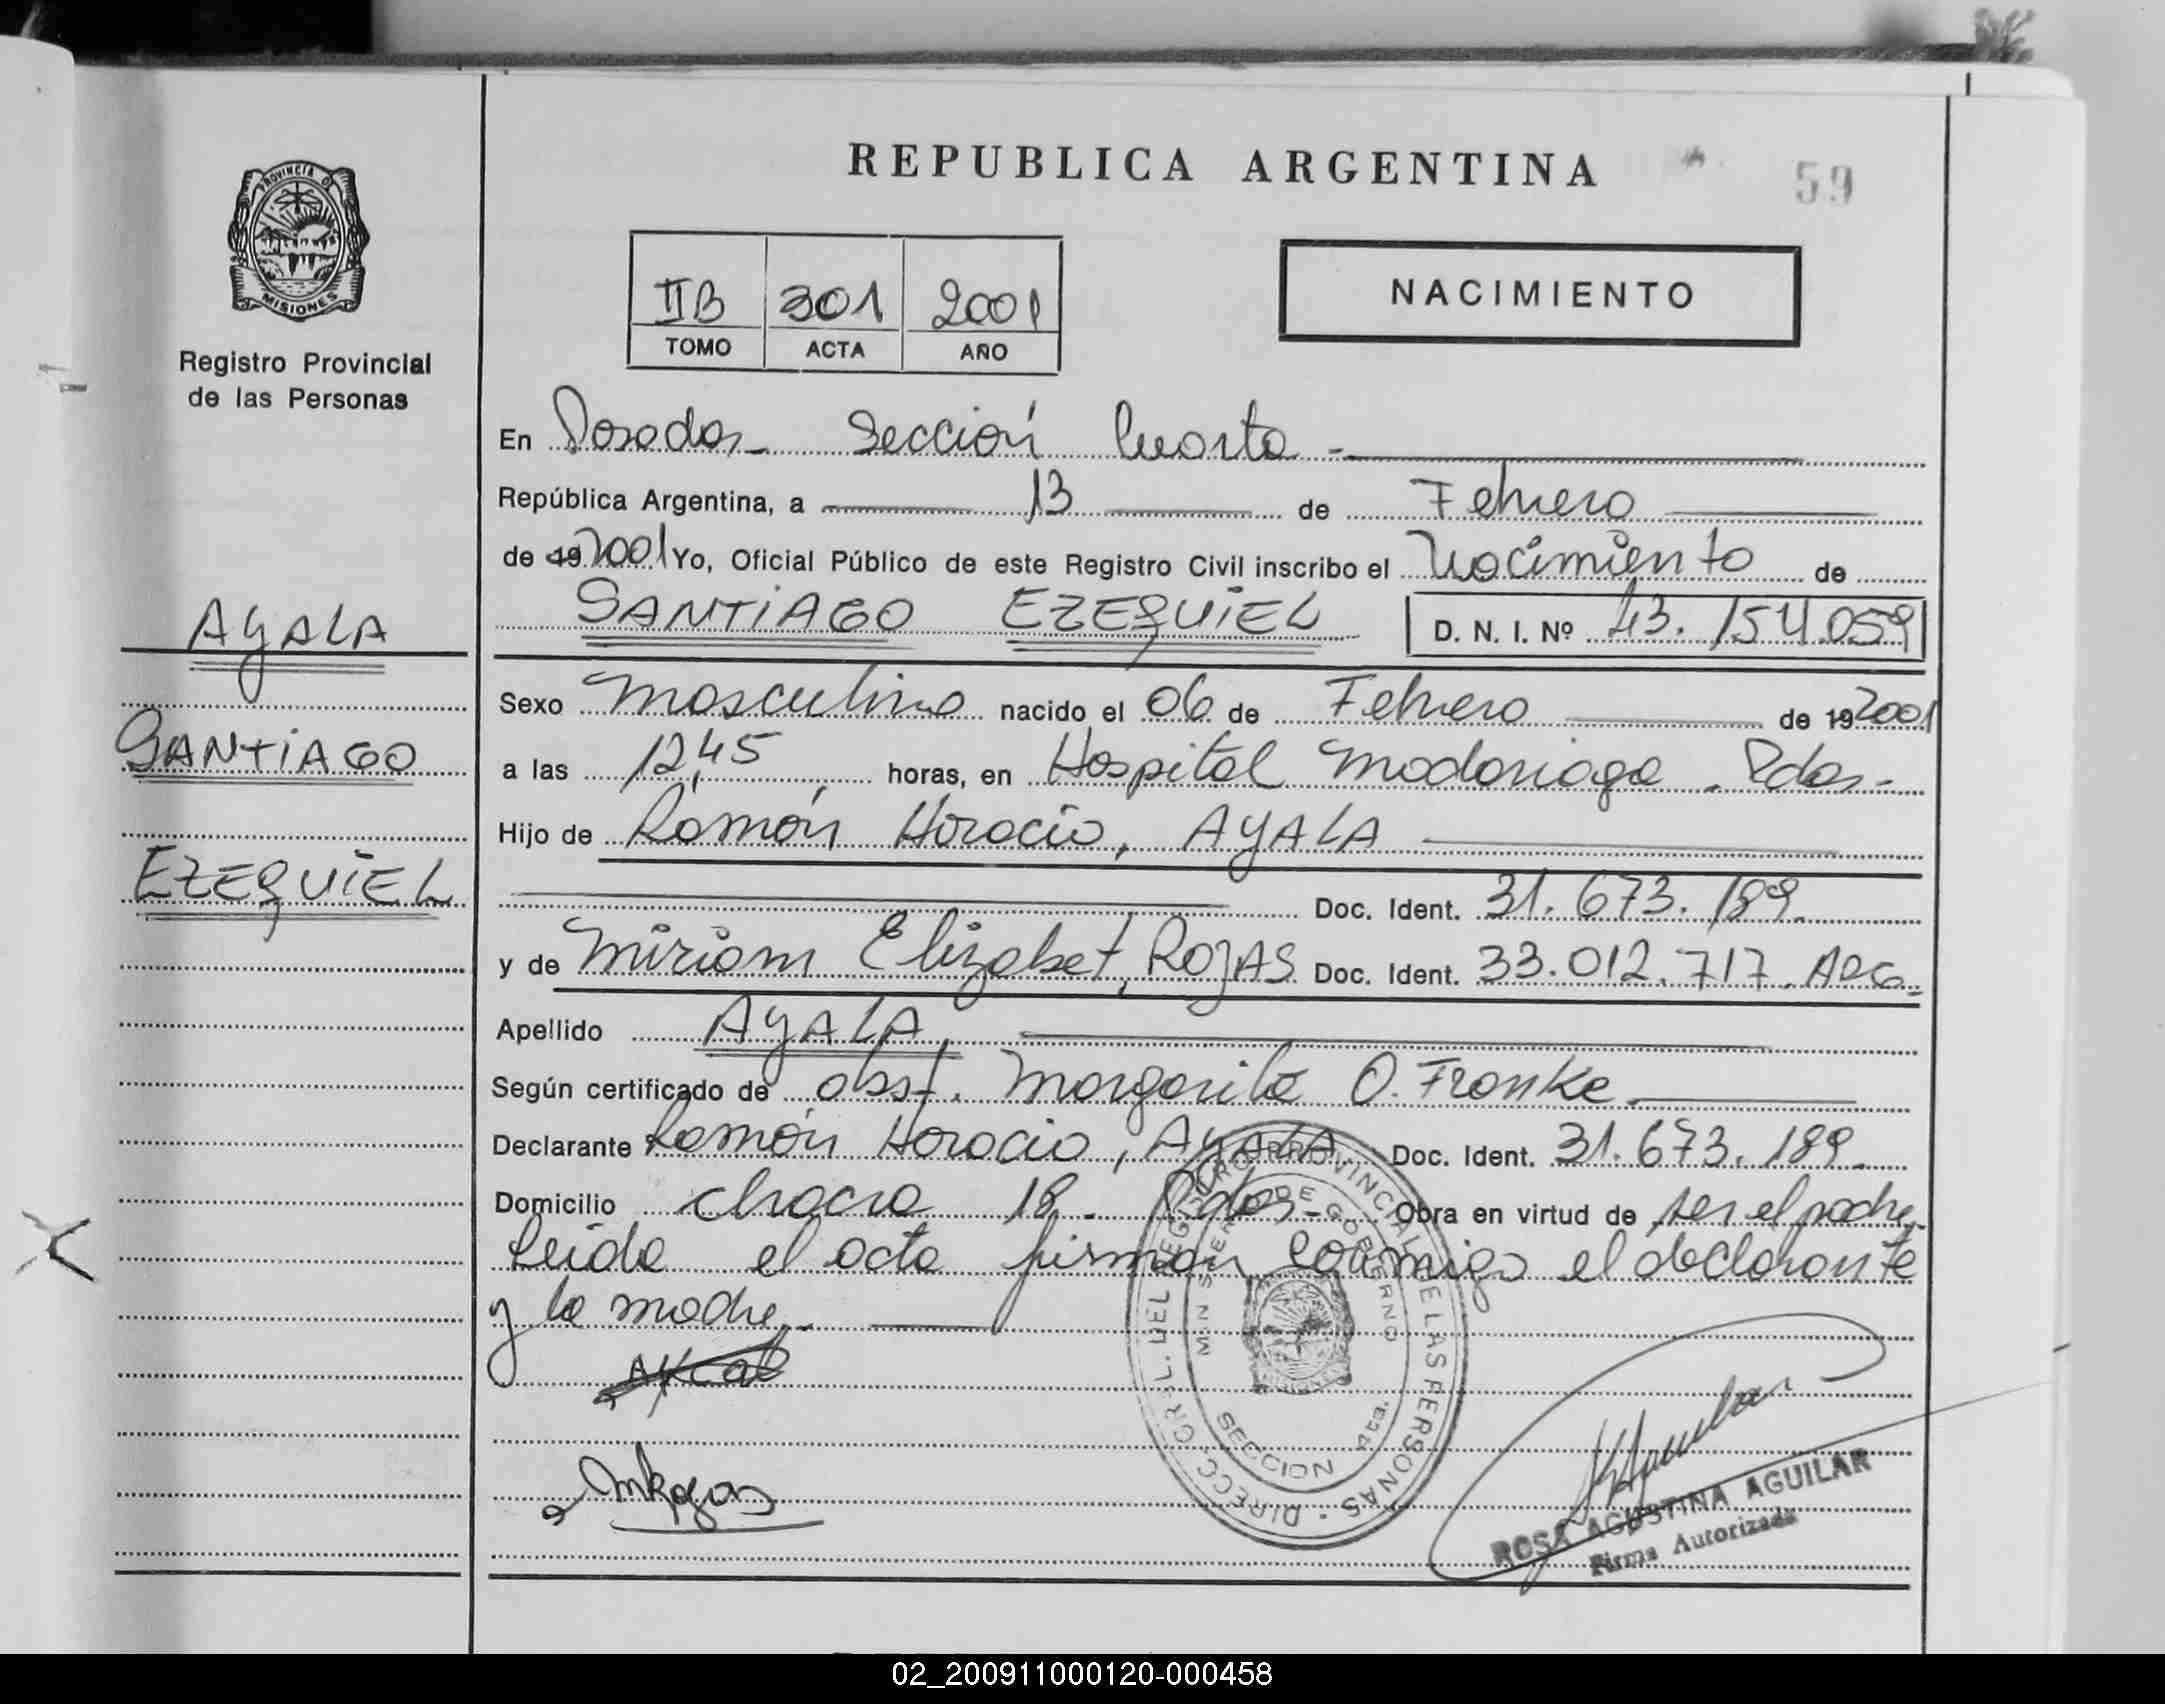 REPUBLICA ARGENTINA
59
PROVINCIA DE
MISIONES
Registro Provincial
de las Personas
IIB 301 2001
TOMO ACTA AÑO
NACIMIENTO
En Posadas - Sección Cuarta -
República Argentina, a 13 de Febrero
de 19 2001 Yo, Oficial Público de este Registro Civil inscribo el Nacimiento de
SANTIAGO EZEQUIEL D. N. I. Nº 43.154.059
AYALA
SANTIAGO
EZEQUIEL
Sexo Masculino nacido el 06 de Febrero de 19 2001
a las 12,45 horas, en Hospital Madariaga. Pdas-
Hijo de Ramón Horacio, AYALA
Doc. Ident. 31.673.189.
y de Miriam Elizabet, ROJAS Doc. Ident. 33.012.717. ARG.
Apellido AYALA
Según certificado de obst. Margarita O. Franke.
Declarante Ramón Horacio, AYALA Doc. Ident. 31.673.189.
Domicilio chacra 18. Pdas- Obra en virtud de ser el padre,
Leida el acta firman conmigo el declarante
y la madre.
DIRECC. GRAL. DEL REGISTRO PROVINCIAL DE LAS PERSONAS
MINISTERIO DE GOBIERNO
MISIONES
SECCION 4ta.
MRojas
ROSA AGUSTINA AGUILAR
Firma Autorizada
02_200911000120-000458